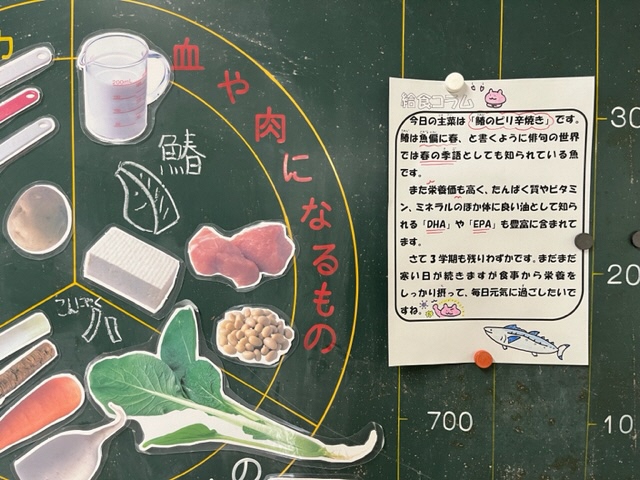 力
血や肉になるもの
鰆
こんにゃく
の
給食コラム
今日の主菜は「鰆のピリ辛焼き」です。
鰆は魚偏に春、と書くように俳句の世界
では春の季語としても知られている魚
です。
また栄養価も高く、たんぱく質やビタミ
ン、ミネラルのほか体に良い油として知ら
れる「DHA」や「EPA」も豊富に含まれて
ます。
さて3学期も残りわずかです。まだまだ
寒い日が続きますが食事から栄養を
しっかり摂って、毎日元気に過ごしたいで
すね。
30
20
700
10